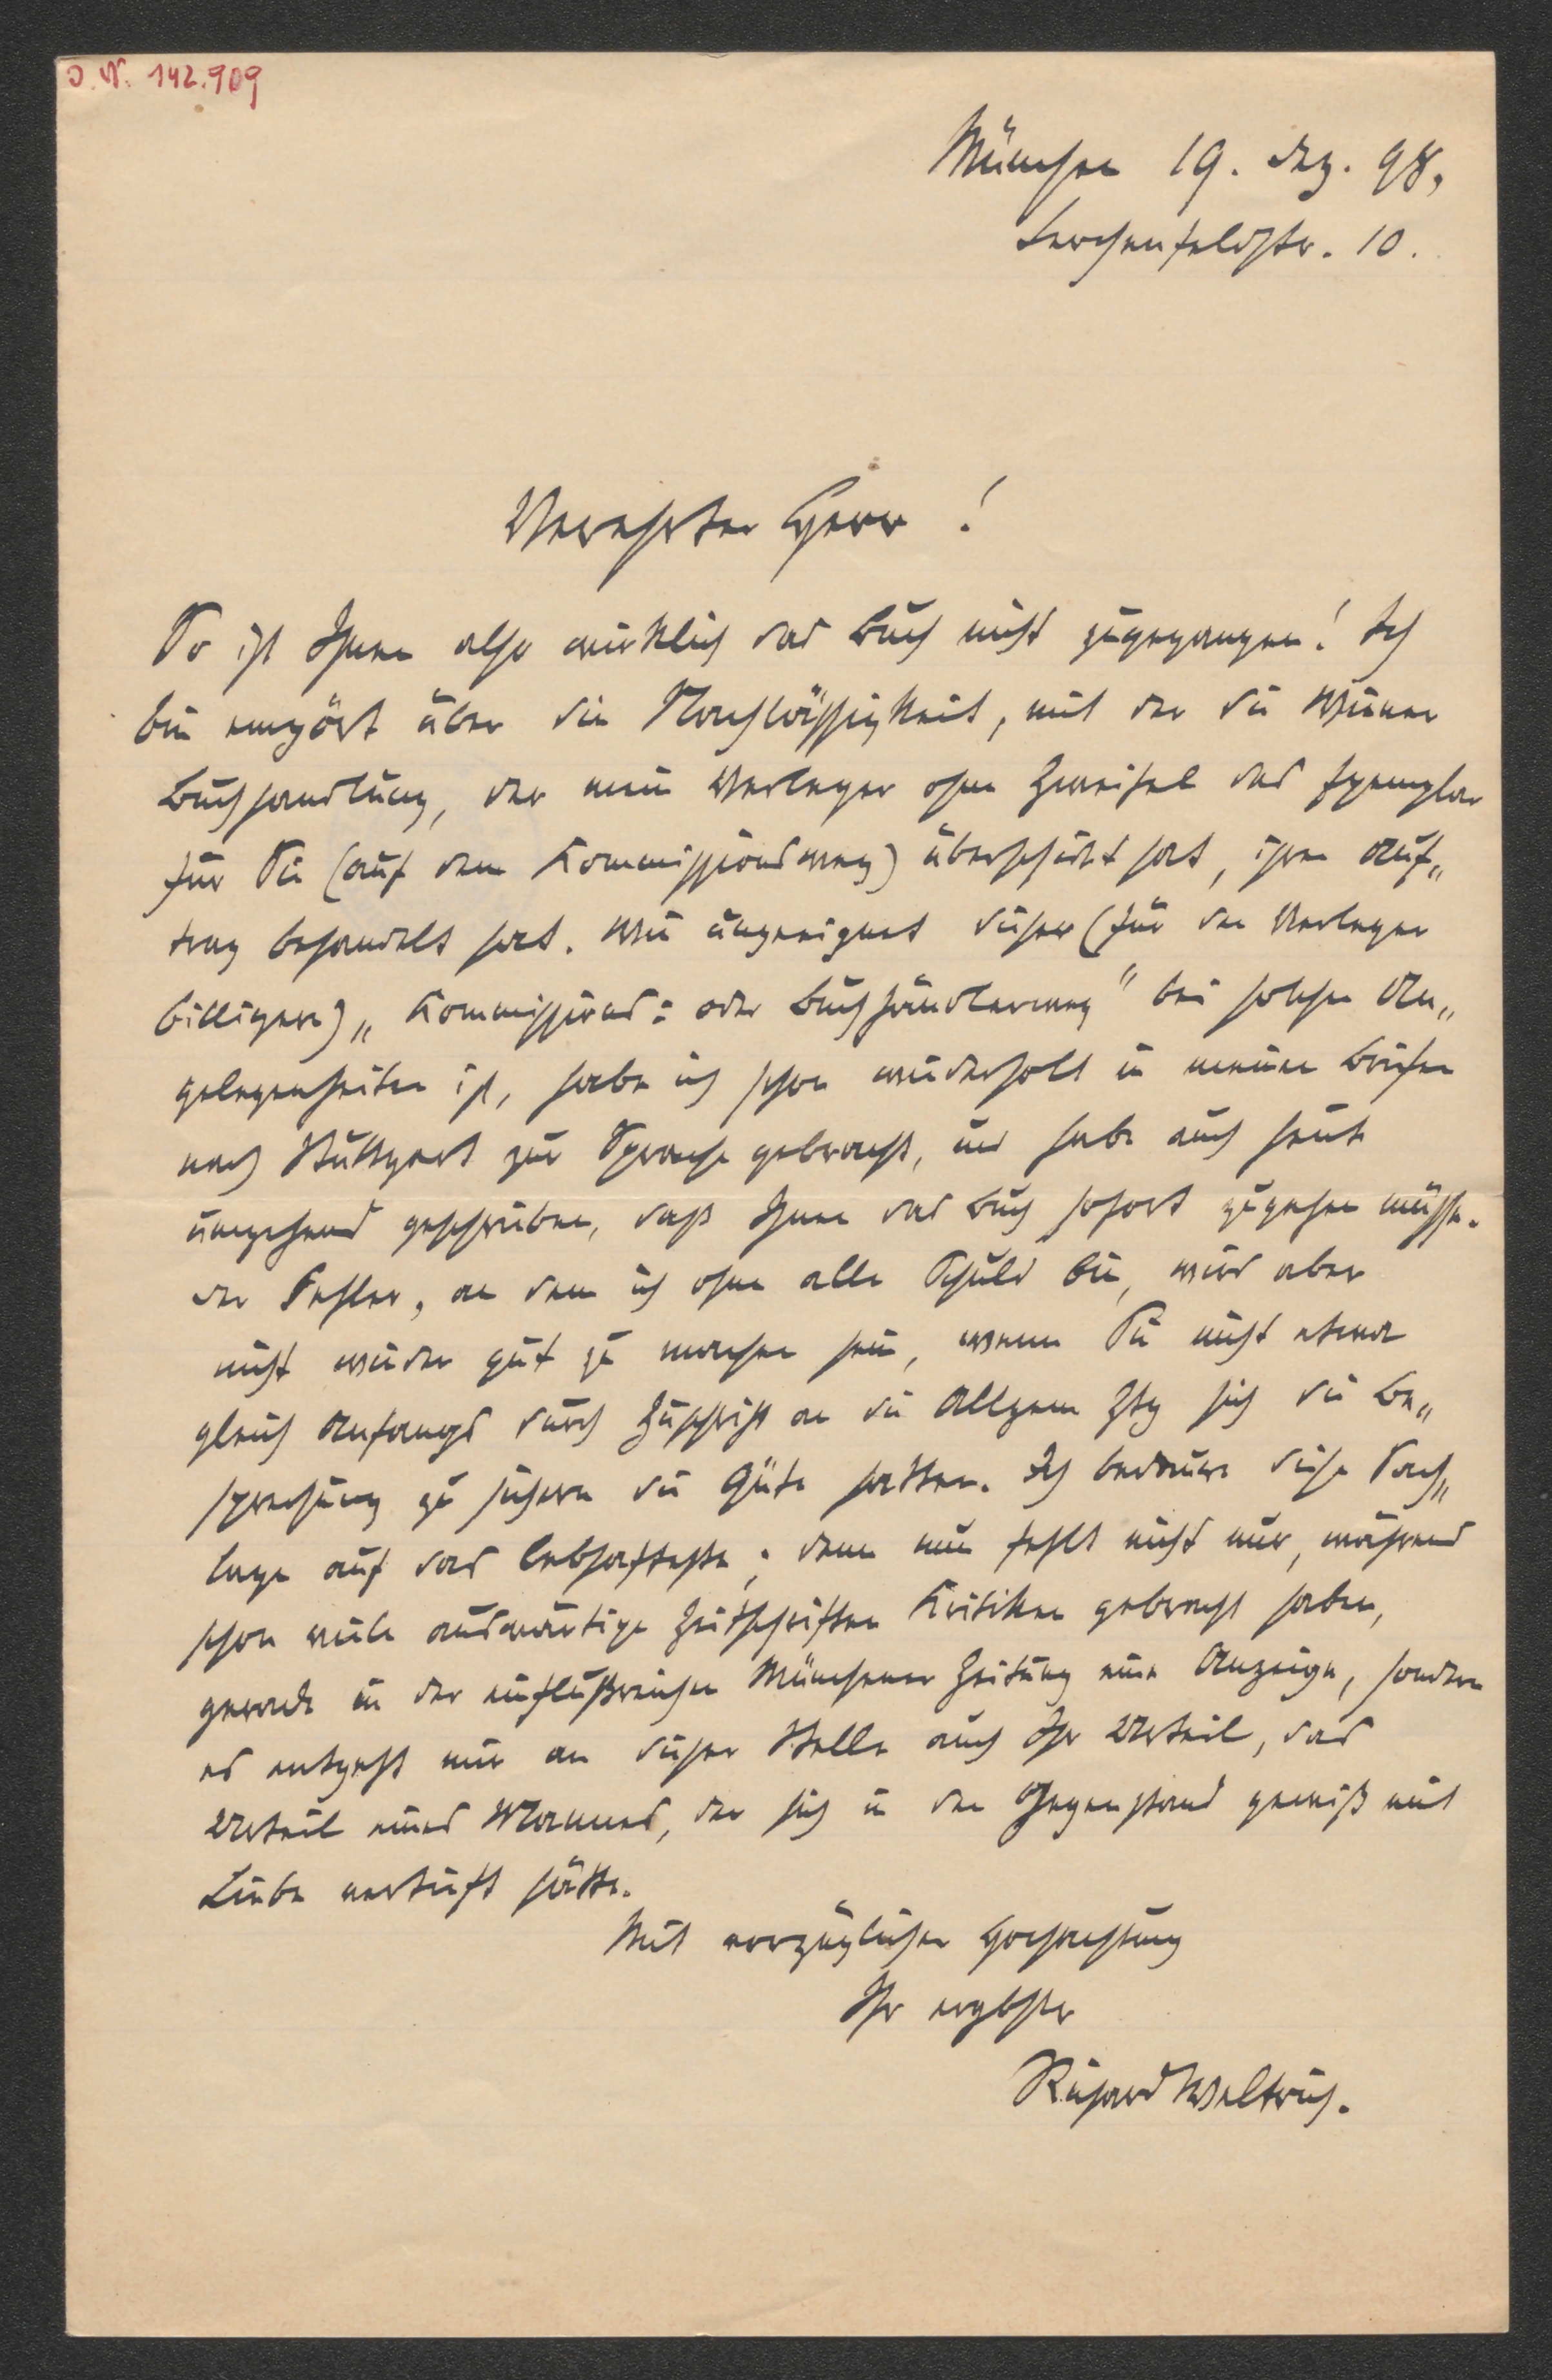 J. N. 142.909
München 19. Dez. 98,
Lerchenfeldstr. 10.
Verehrter Herr!
So ist Ihnen also wirklich das Buch nicht zugegangen! Ich
bin empört über die Nachlässigkeit, mit der die Wiener
Buchhandlung, der mein Verleger ohne Zweifel das Exemplar
für Sie (auf dem Kommissionsweg) überschickt hat, ihren Auf„
trag behandelt hat. Wie ungeeignet dieser (für den Verleger
billigere) „Kommissions= oder Buchhändlerweg" bei solchen An„
gelegenheiten ist, habe ich schon wiederholt in meinen Briefen
nach Stuttgart zur Sprache gebracht, und habe auch heute
umgehend geschrieben, daß Ihnen das Buch sofort zugehen müsse.
Der Fehler, an dem ich ohne alle Schuld bin, wird aber
nicht wieder gut zu machen sein, wenn Sie nicht etwa
gleich Anfangs durch Zuschrift an die Allgem Ztg sich die Be„
sprechung zu sichern die Güte hatten. Ich bedaure diese Sach„
lage auf das lebhafteste; denn nun fehlt nicht nur, während
schon viele auswärtige Zeitschriften Kritiken gebracht haben,
gerade in der einflußreichen Münchener Zeitung eine Anzeige, sondern
es entgeht mir an dieser Stelle auch Ihr Urteil, das
Urteil eines Mannes, der sich in den Gegenstand gewiß mit
Liebe vertieft hätte.
Mit vorzüglicher Hochachtung
Ihr ergbster
Richard Weltrich.